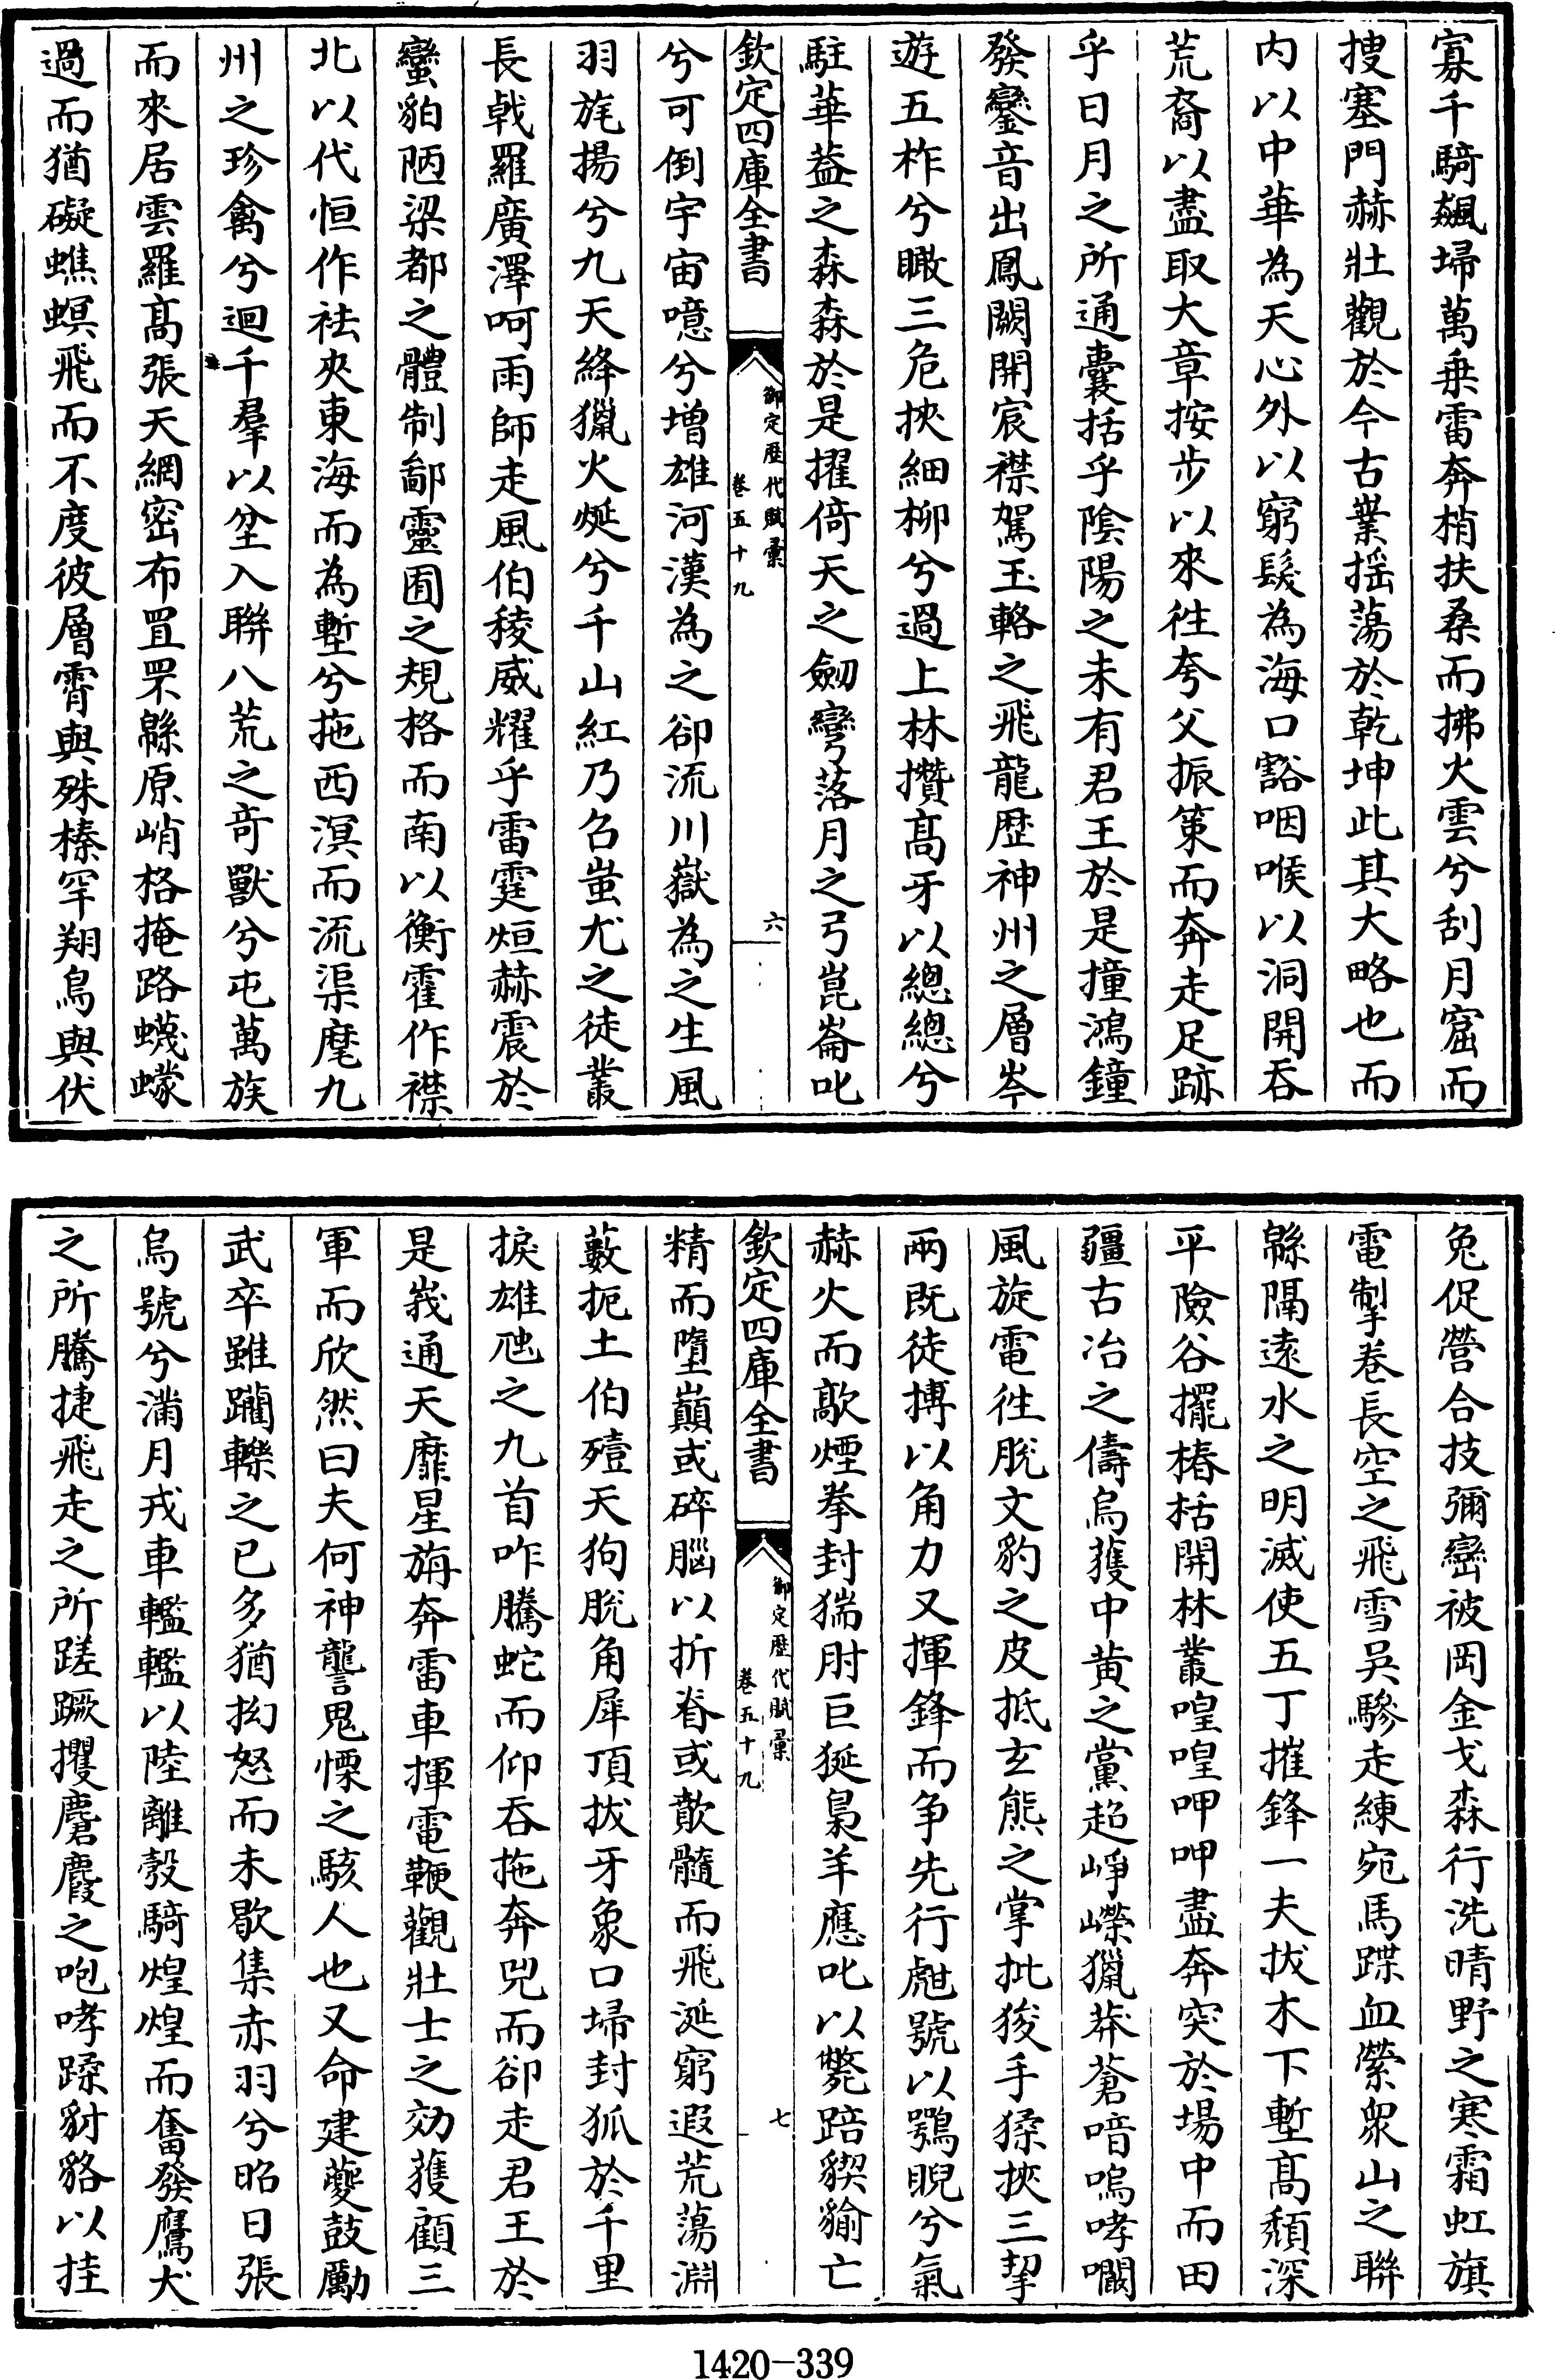 寡千騎飆埽萬乗雷奔梢扶桑而拂火雲兮刮月窟而
捜塞門赫壯觀於今古業揺蕩於乾坤此其大略也而
内以中華為天心外以窮髮為海口豁咽喉以洞開吞
荒裔以盡取大章按步以來徃夸父振策而奔走足跡
乎日月之所通囊括乎隂陽之未有君王於是撞鴻鐘
發鑾音出鳳闕開宸襟駕玉輅之飛龍歴神州之層岑
遊五柞兮瞰三危挾細柳兮過上林攢髙牙以總總兮
駐華葢之森森於是擢倚天之劒彎落月之弓崑崙叱
欽定四庫全書
御定歴代賦彙
卷五十九
六
兮可倒宇宙噫兮增雄河漢為之卻流川嶽為之生風
羽旄揚兮九天絳獵火㷼兮千山紅乃召蚩尤之徒叢
長㦸羅廣澤呵雨師走風伯稜威耀乎雷霆烜赫震於
蠻貊陋梁都之體制鄙靈囿之規格而南以衡霍作襟
北以代恒作祛夾東海而為塹兮拖西溟而流渠麾九
州之珍禽兮迴千羣以坌入聯八荒之奇獸兮屯萬族
而來居雲羅髙張天網密布罝罘緜原峭格掩路蠛蠓
過而猶礙蟭螟飛而不度彼層霄與殊榛罕翔鳥與伏
兔促營合技彌巒被岡金戈森行洗晴野之寒霜虹旗
電掣卷長空之飛雪吳驂走練宛馬蹀血縈衆山之聯
緜隔逺水之明滅使五丁摧鋒一夫拔木下塹髙頽深
平險谷擺椿栝開林叢喤喤呷呷盡奔突於場中而田
疆古冶之儔烏獲中黄之黨超崢嶸獵莽蒼喑嗚哮㘚
風旋電徃脫文豹之皮抵玄熊之掌批狻手猱挾三挈
兩既徒搏以角力又揮鋒而争先行甝號以鶚睨兮氣
赫火而歊煙拳封猯肘巨狿梟羊應叱以斃踣猰貐亡
欽定四庫全書
御定歴代賦彙
卷五十九
七
精而墮巔或碎腦以折脊或歕髓而飛涎窮遐荒蕩淵
藪扼土伯殪天狗脫角犀頂拔牙象口埽封狐於千里
捩雄虺之九首咋騰蛇而仰吞拖奔兕而卻走君王於
是峩通天靡星旃奔雷車揮電鞭觀壯士之効獲顧三
軍而欣然曰夫何神讋鬼慄之駭人也又命建夔鼓勵
武卒雖躪轢之已多猶拗怒而未歇集赤羽兮昭日張
烏號兮滿月戎車轞轞以陸離彀騎煌煌而奮發鷹犬
之所騰捷飛走之所蹉蹶攫麏麚之咆哮蹂豺貉以挂
1420-339